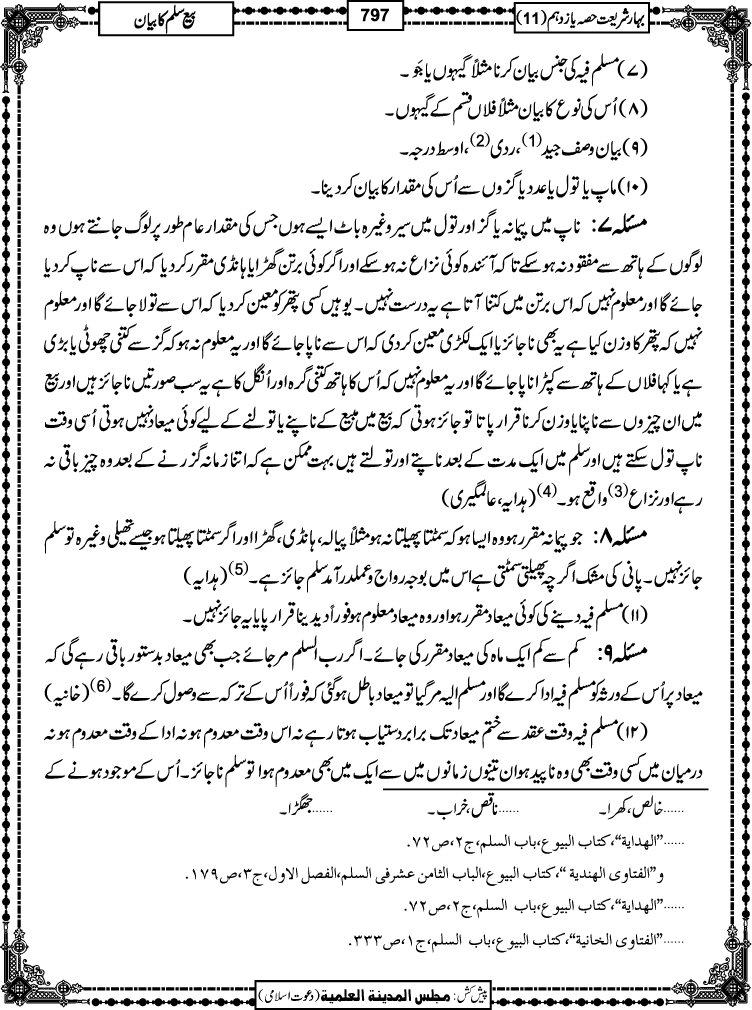 بہار شریعت حصہ یازدہم (11)
797
بیع سلم کا بیان
(۷) مسلم فیہ کی جنس بیان کرنا مثلاً گیہوں یا جَو۔
(۸) اُس کی نوع کا بیان مثلاً فلاں قسم کے گیہوں۔
(۹) بیان وصف جید(1)، ردی(2)، اوسط درجہ۔
(۱۰) ماپ یا تول یا عدد یا گزوں سے اُس کی مقدار کا بیان کر دینا۔
مسئلہ ۷: ناپ میں پیمانہ یا گز اور تول میں سیر وغیرہ باٹ ایسے ہوں جس کی مقدار عام طور پر لوگ جانتے ہوں وہ
لوگوں کے ہاتھ سے مفقود نہ ہو سکے تاکہ آئندہ کوئی نزاع نہ ہو سکے اور اگر کوئی برتن گھڑا یا ہانڈی مقرر کر دیا کہ اس سے ناپ کر دیا
جائے گا اور معلوم نہیں کہ اس برتن میں کتنا آتا ہے یہ درست نہیں۔ یوہیں کسی پتھر کو معین کر دیا کہ اس سے تولا جائے گا اور معلوم
نہیں کہ پتھر کا وزن کیا ہے یہ بھی ناجائز یا ایک لکڑی معین کر دی کہ اس سے ناپا جائے گا اور یہ معلوم نہ ہو کہ گز سے کتنی چھوٹی یا بڑی
ہے یا کہا فلاں کے ہاتھ سے کپڑا ناپا جائے گا اور یہ معلوم نہیں کہ اُس کا ہاتھ کتنی گرہ اور اُنگل کا ہے یہ سب صورتیں ناجائز ہیں اور بیع
میں ان چیزوں سے ناپنا یا وزن کرنا قرار پاتا تو جائز ہوتی کہ بیع میں مبیع کے ناپنے یا تولنے کے لیے کوئی میعاد نہیں ہوتی اُسی وقت
ناپ تول سکتے ہیں اور سلم میں ایک مدت کے بعد ناپتے اور تولتے ہیں بہت ممکن ہے کہ اتنا زمانہ گزرنے کے بعد وہ چیز باقی نہ
رہے اور نزاع(3) واقع ہو۔(4) (ہدایہ، عالمگیری)
مسئلہ ۸: جو پیمانہ مقرر ہو وہ ایسا ہو کہ سمٹتا پھیلتا نہ ہو مثلاً پیالہ، ہانڈی، گھڑا اور اگر سمٹتا پھیلتا ہو جیسے تھیلی وغیرہ تو سلم
جائز نہیں۔ پانی کی مشک اگرچہ پھیلتی سمٹتی ہے اس میں بوجہ رواج و عملدرآمد سلم جائز ہے۔(5) (ہدایہ)
(۱۱) مسلم فیہ دینے کی کوئی میعاد مقرر ہو اور وہ میعاد معلوم ہو فوراً دیدینا قرار پایا یہ جائز نہیں۔
مسئلہ ۹: کم سے کم ایک ماہ کی میعاد مقرر کی جائے۔ اگر رب السلم مر جائے جب بھی میعاد بدستور باقی رہے گی کہ
میعاد پر اُس کے ورثہ کو مسلم فیہ ادا کرے گا اور مسلم الیہ مر گیا تو میعاد باطل ہو گئی کہ فوراً اُس کے ترکہ سے وصول کرے گا۔(6) (خانیہ)
(۱۲) مسلم فیہ وقت عقد سے ختم میعاد تک برابر دستیاب ہوتا رہے نہ اس وقت معدوم ہو نہ ادا کے وقت معدوم ہو نہ
درمیان میں کسی وقت بھی وہ ناپید ہو ان تینوں زمانوں میں سے ایک میں بھی معدوم ہوا تو سلم ناجائز۔ اُس کے موجود ہونے کے
......خالص، کھرا۔ ......ناقص، خراب۔ ......جھگڑا۔
......”الهداية“، كتاب البيوع، باب السلم، ج٢، ص٧٢.
و”الفتاوى الهندية“، كتاب البيوع، الباب الثامن عشر فى السلم، الفصل الاول، ج٣، ص١٧٩.
......”الهداية“، كتاب البيوع، باب السلم، ج٢، ص٧٢.
......”الفتاوى الخانية“، كتاب البيوع، باب السلم، ج١، ص٣٣٣.
پیش کش: مجلس المدينة العلمية (دعوت اسلامی)